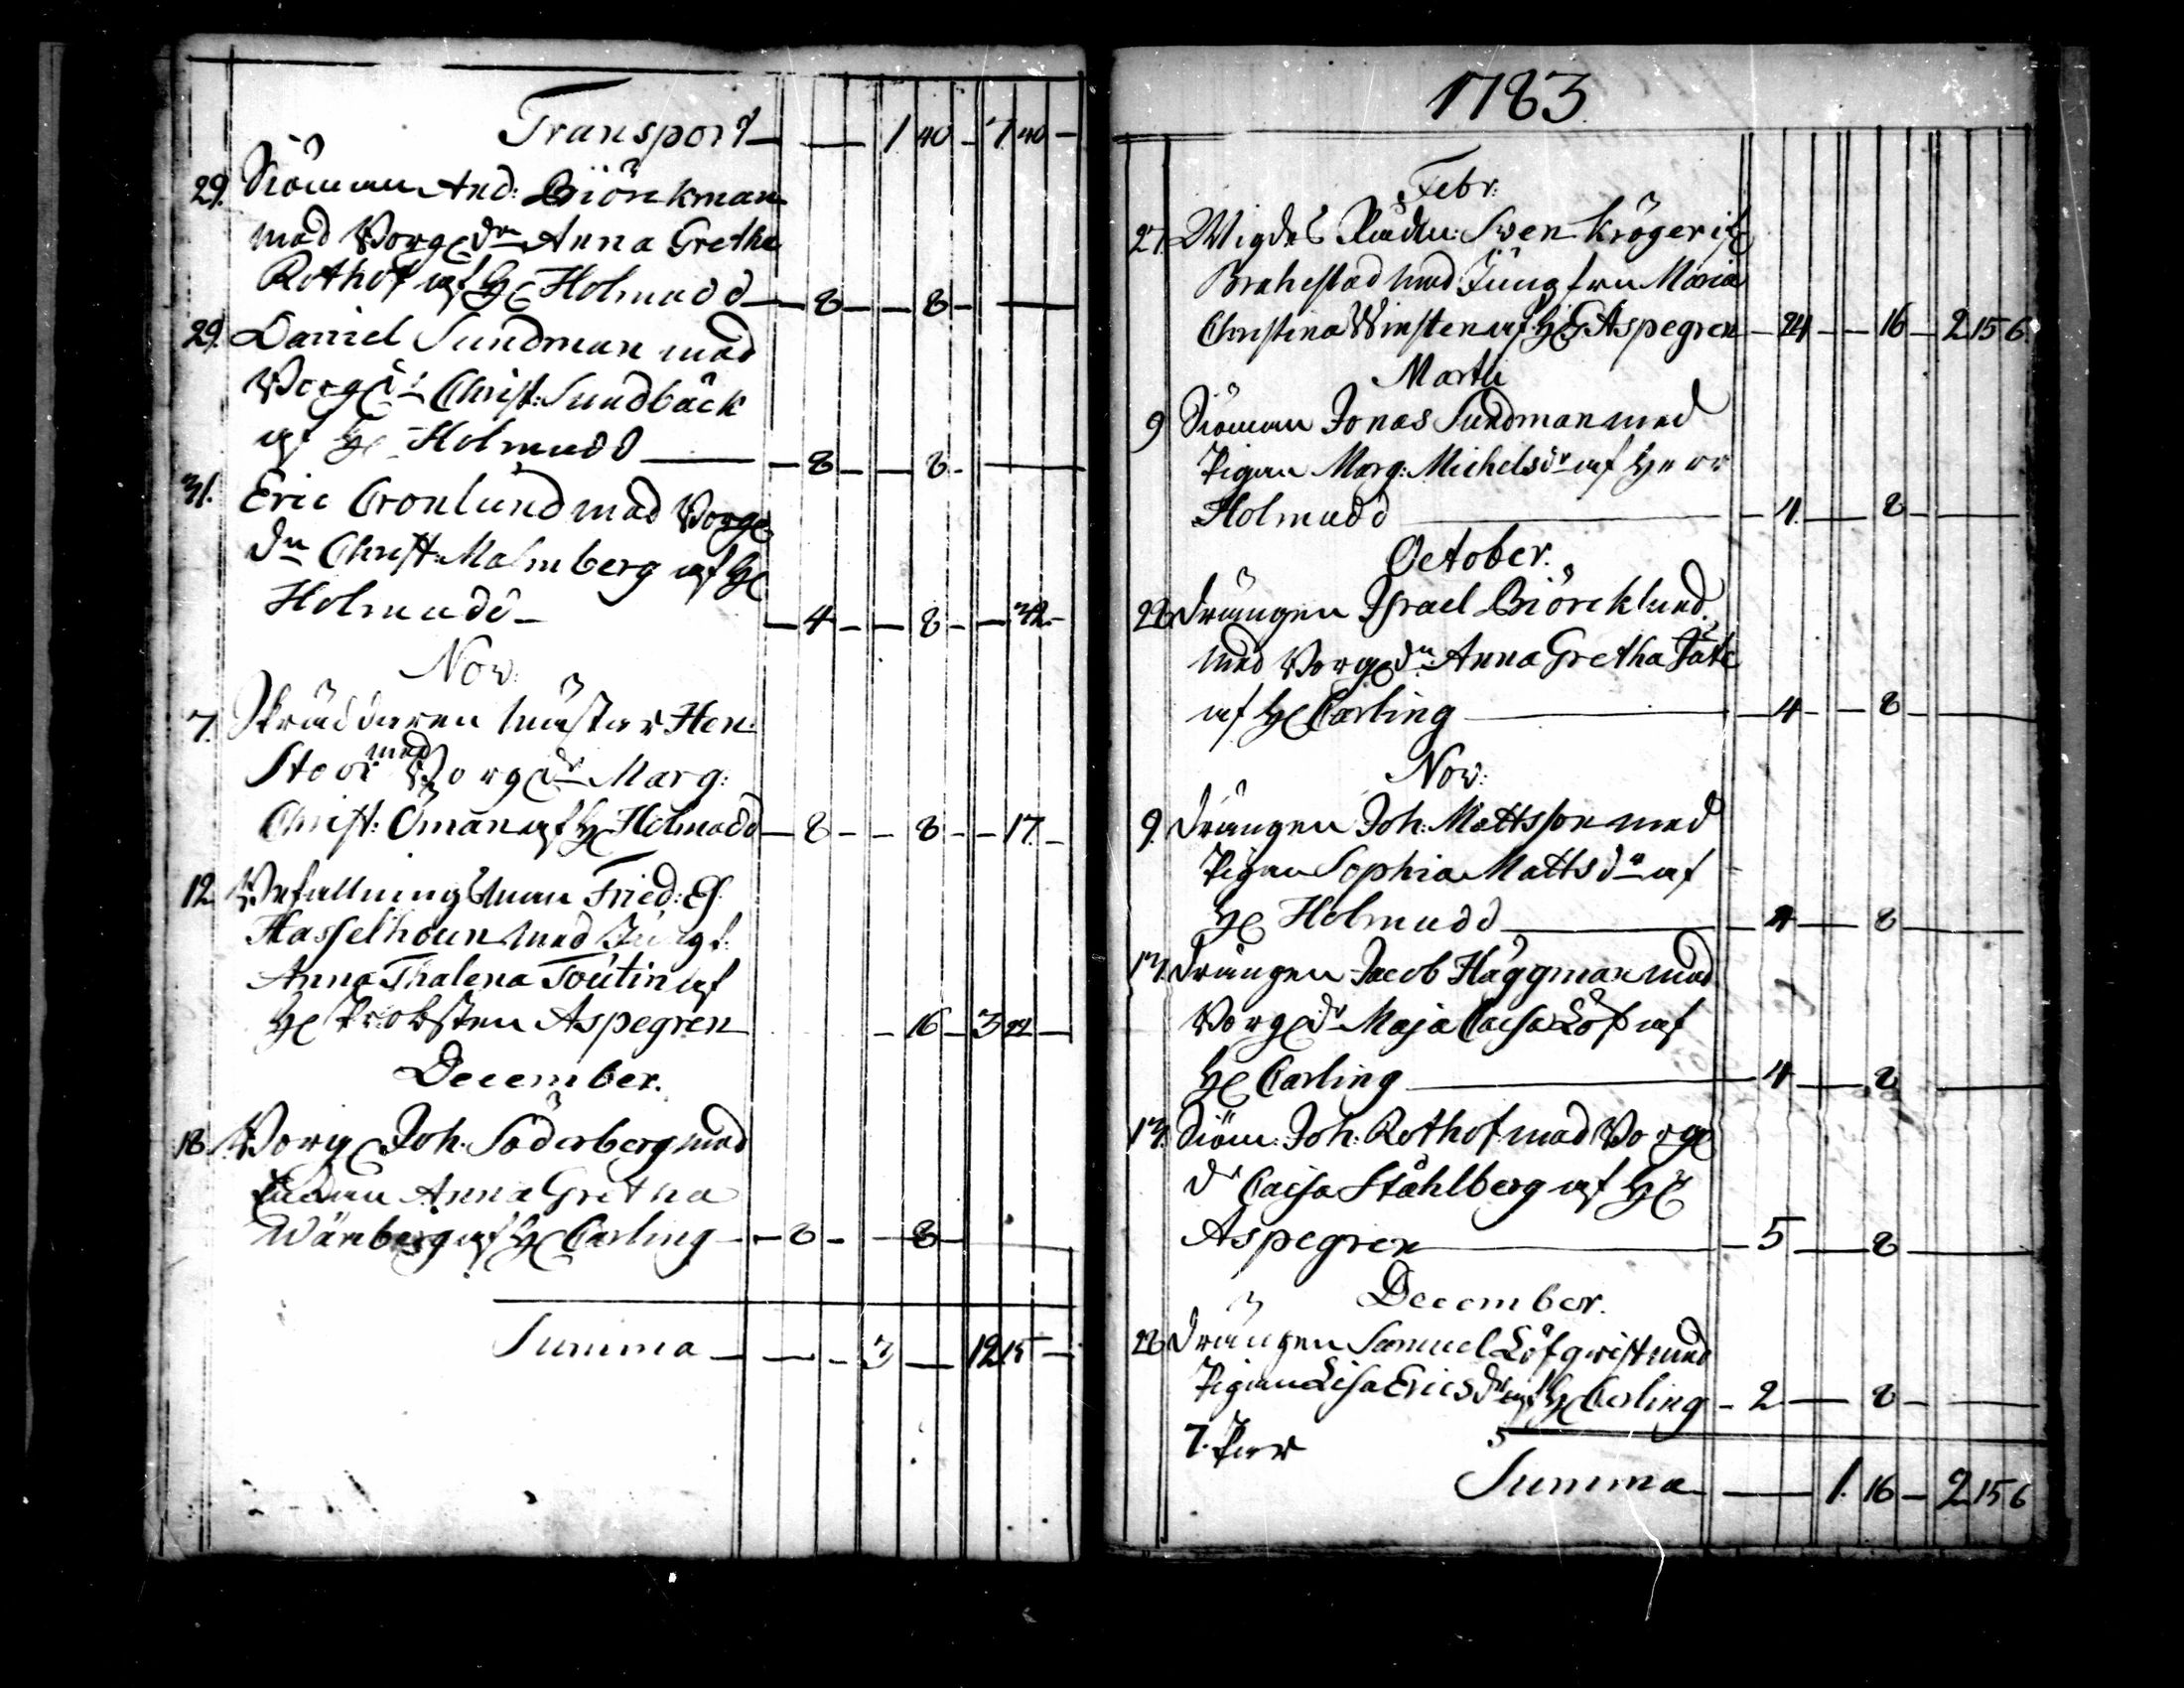 Transport — — 1 40 — 7 40 —
29. Siöman And: Biörkman
med Borge dn Anna Gretha
Rothof af H Holmudd — 8 — — 8 — —
29. Daniel Sundman med
Borge dr Christ: Sundbäck
af H Holmudd — 8 — — 8 — —
31. Eric Cronlund med Borge
dn Christ: Malmberg af H
Holmudd — 4 — — 8 — — 32 —
Nov:
7. Skräddaren mästar Hen:
Stoor med Borge dr Marg:
Christ: Öman af H Holmudd — 8 — — 8 — — 17 —
12. Befallningsman Fried:
Hasselhoun med Jungf:
Anna Thalena Toutin af
H Probsten Aspegren — 16 — 3 22 —
December.
18. Borg Joh: Söderberg med
Änkan Anna Gretha
Wänberg af H Carling — 8 — — 8 —
Summa — — 3 — 12 15 —
1783.
Febr:
27. Sven Kröger
Brahestad med Jungfru Maria
Christina Winsten af H Aspegren — 24 — — 16 — 2 15 6.
Martii
9 Siöman Jonas Sundman med
Pigan Marg: Michelsdr af Herr
Holmudd — 4 — 8 — —
October.
28. Drängen Israel Biörcklund
med Borge dn Anna Gretha
af H Carling — 4 — — 8 — —
Nov:
9. Drängen Joh: Mattsson med
Pigan Sophia Mattsdr af
H Holmudd — 4 — 8 —
13. Drängen Jacob Häggman med
Borge dr Maja Caisa Löf af
H Carling — 4 — 8 —
13. Siöm: Joh: Rothof med Borge
dr Caisa Ståhlberg af H
Aspegren — 5 — 8 —
December.
28. Drängen Samuel Löfqvist med
Pigan Lisa Ericsdr af H Carling — 2 — 8 — —
7. Par
Summa — 1. 16 — 2 15 6